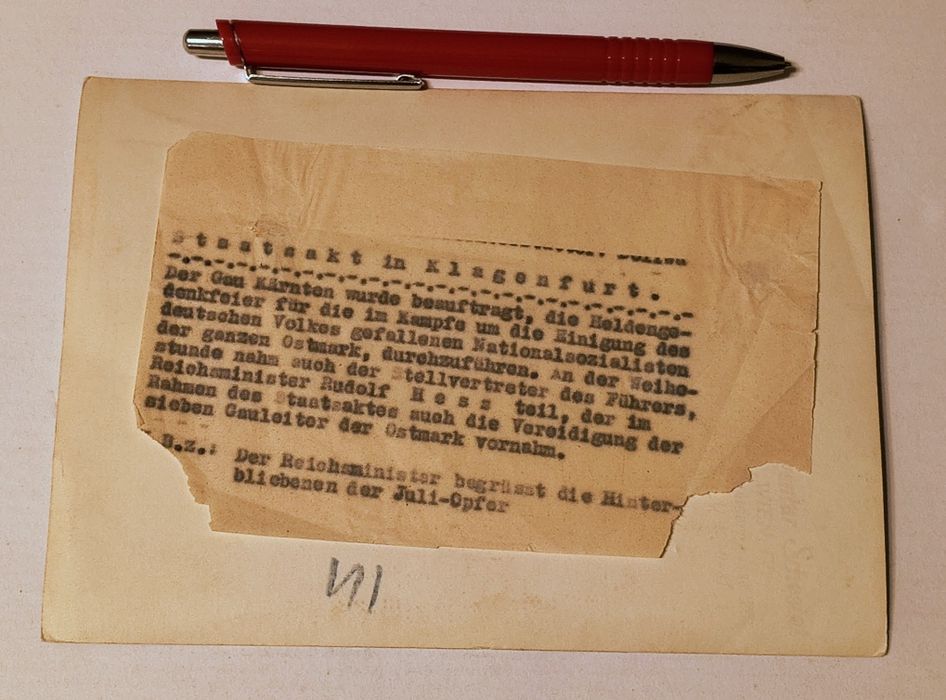 Staatsakt in Klagenfurt.
Der Gau Kärnten wurde beauftragt, die Heldenge-
denkfeier für die im Kampfe um die Einigung des
deutschen Volkes gefallenen Nationalsozialisten
der ganzen Ostmark, durchzuführen. An der Weihe-
stunde nahm auch der Stellvertreter des Führers,
Reichsminister Rudolf Hess teil, der im
Rahmen des Staatsaktes auch die Vereidigung der
sieben Gauleiter der Ostmark vornahm.
B.z.: Der Reichsminister begrüsst die Hinter-
bliebenen der Juli-Opfer